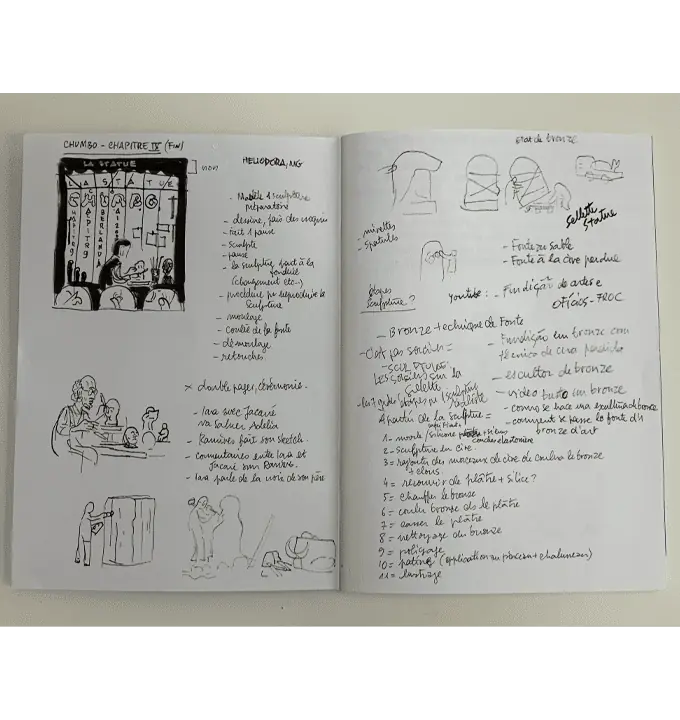 CHUMBO - CHAPITRE IX (FIN)
LA STATUE
HELIODORA, MG
LA STATUE
CHAPITRE
- Modèle 1 sculpture
préparatoire
- dessine, fait des
- fait 1 pause
- sculpte
- pause
- la sculpture part à la
fonderie
(changement etc...)
- procédure pr reproduire la
sculpture
- moulage
- coulée de la fonte
- démoulage
- retouches.
× double pages, cérémonie.
- Iara avec Jacaré
va saluer Adélia
- Ramires fait son sketch.
- Commentaires entre Iara et
Jacaré sur Ramires.
- Iara parle de la voix de son père
état de bronze
- mirettes
- spatules
sellette
statue
- Fonte au sable
- Fonte à la cire perdue
étapes
sculpture ?
youtube : - Fundição de artes e
ofícios - FAOC
- Bronze technique de Fonte
- Fundição em bronze com
técnica de cera perdida
- escultor de bronze
- video busto em bronze
- como se hace una escultura de bronze
- comment se passe la fonte d'1
bronze d'art
sur la
sellette
- les grdes étapes pr 1 sculpture
réaliste
à partir de la sculpture =
1- moule / silicone
2- sculpture en cire
3 = rajouter des morceaux de cire de coulée le bronze
+ clous.
4 = recouvrir de plâtre + silice ?
5 = chauffer le bronze
6 = couler bronze ds le plâtre
7 = casser le plâtre
8 = nettoyage du bronze
9 = polissage
10 = patine (application au pinceau + chalumeau)
11 = lustrage